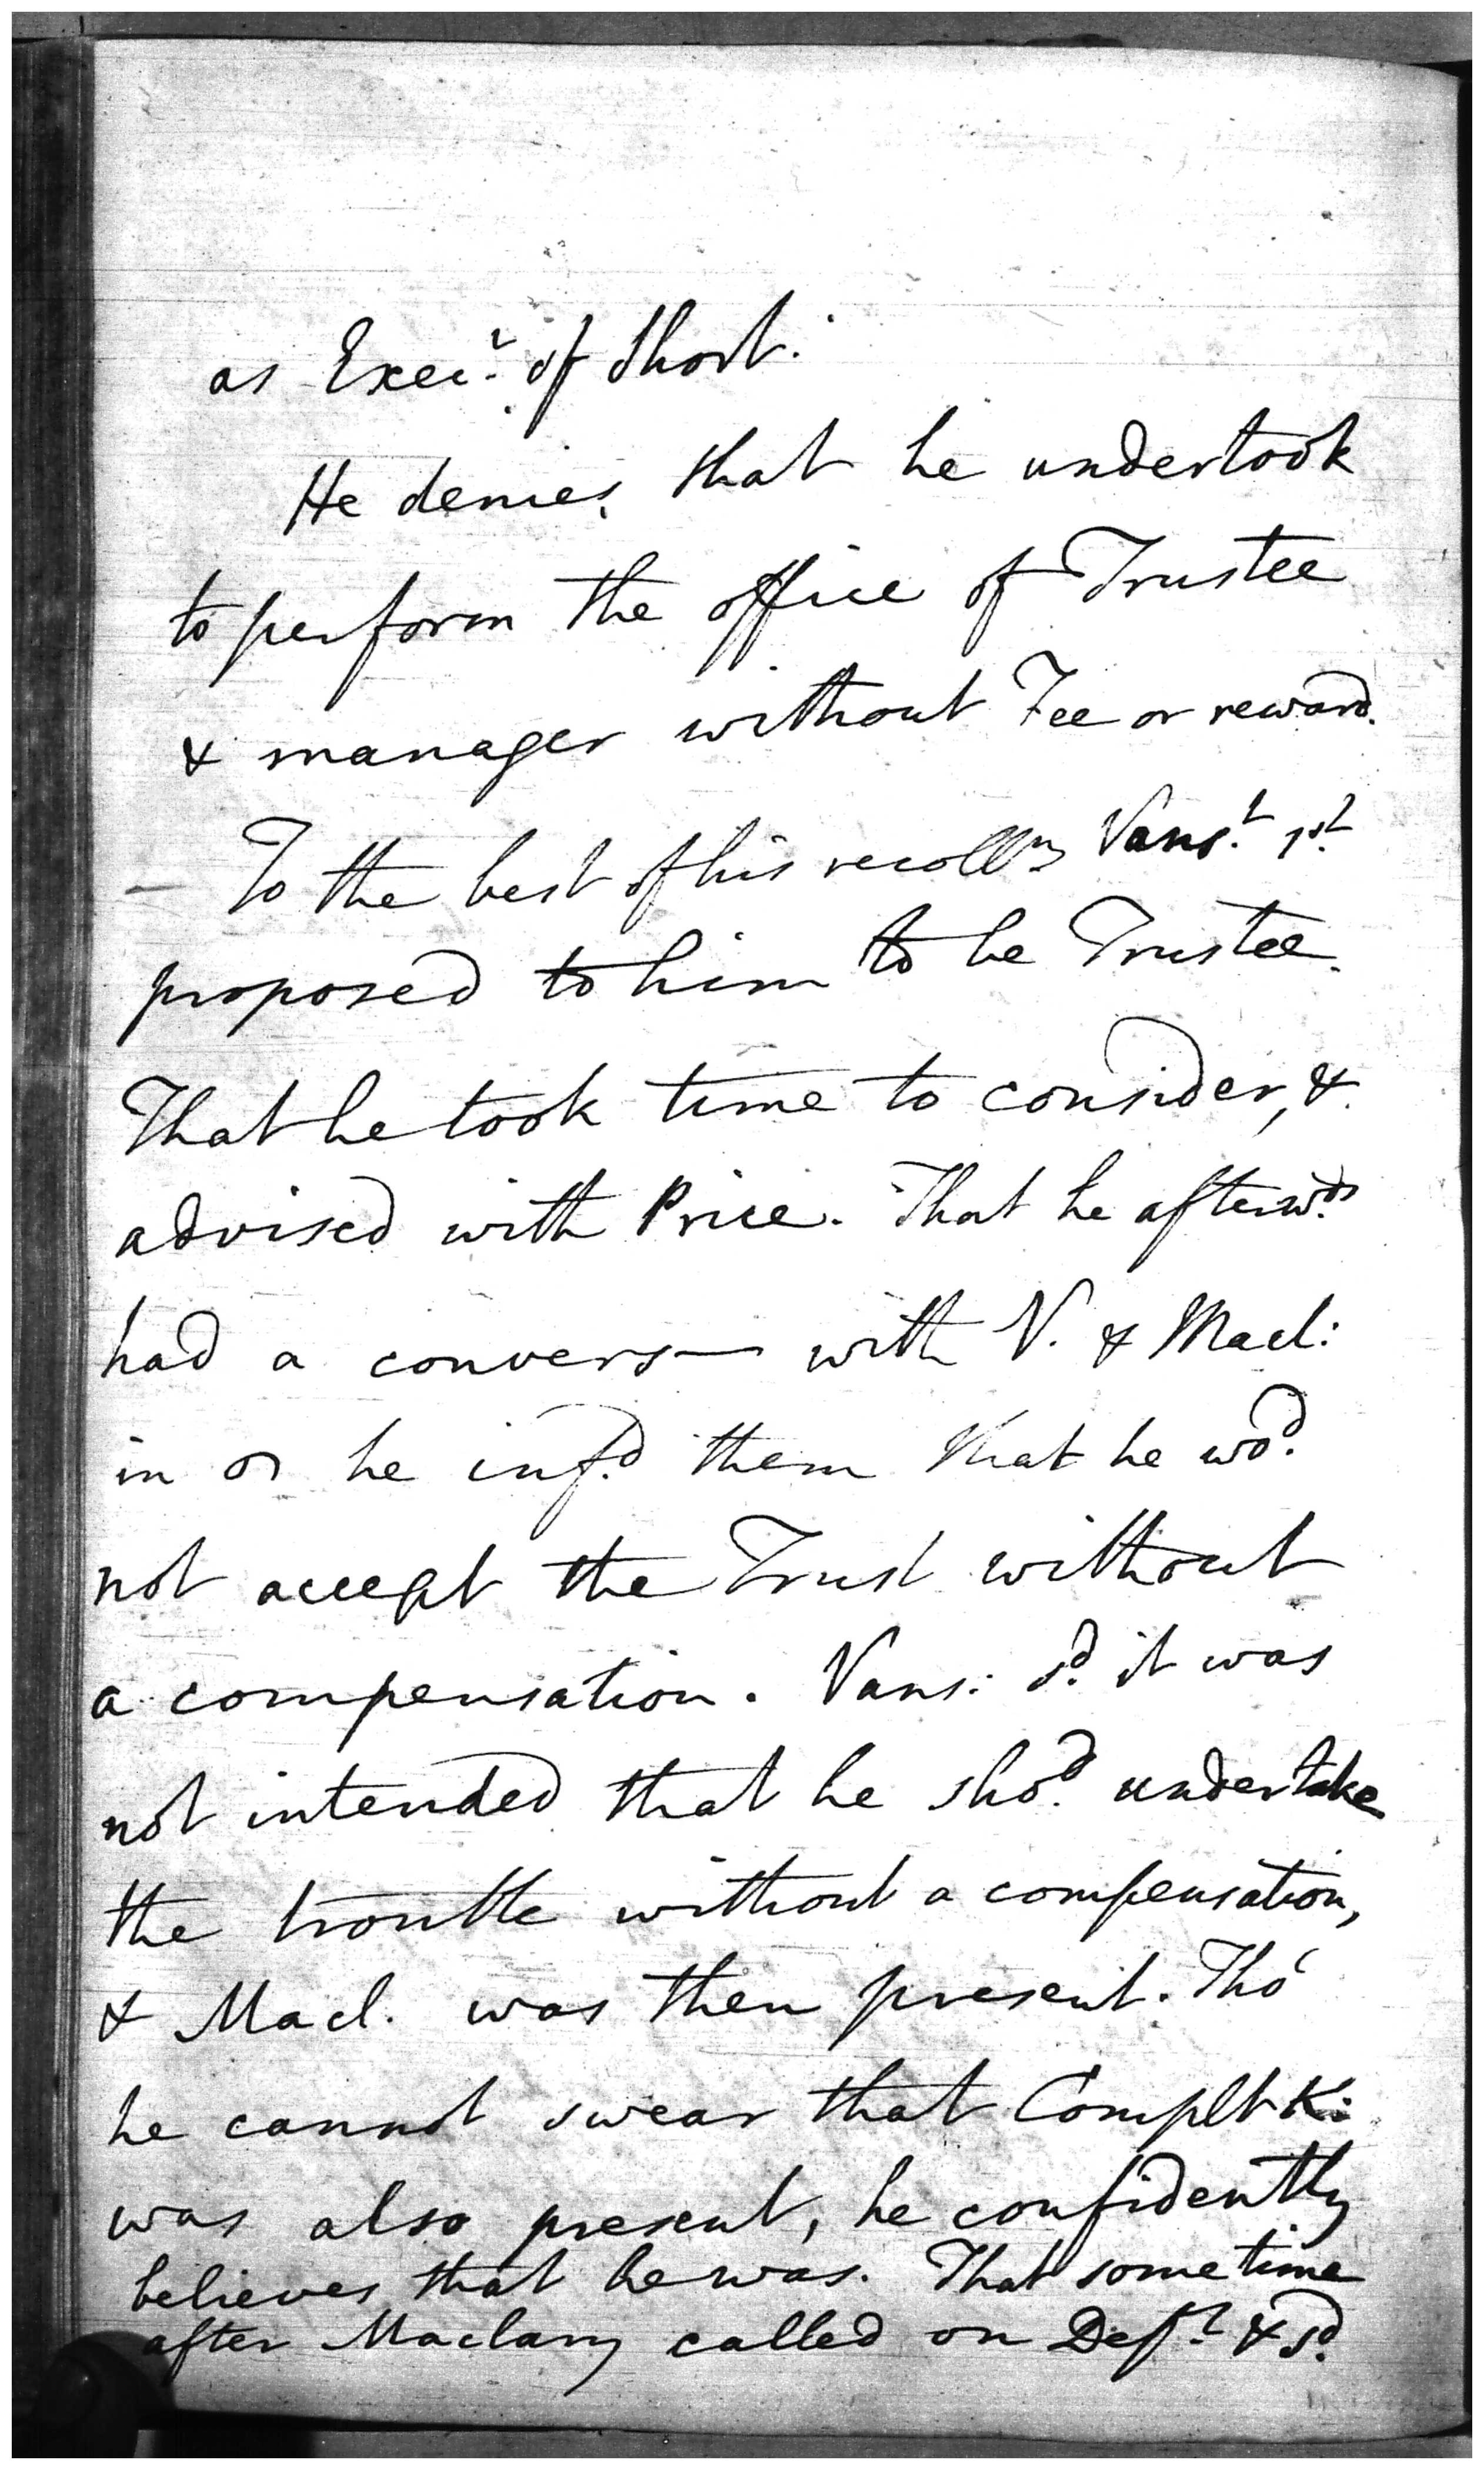 as Execr. of Short.
He denies that he undertook
to perform the office of Trustee
& manager without Fee or reward.
— To the best of his recolln Vanst. 1st.
proposed to him to be Trustee.
That he took time to consider, &
advised with Price. That he afterwds.
had a convers— with V. & Macl:
in he infd. them that he wod.
not accept the Trust without
a compensation. Vans: sd. it was
not intended that he shod. undertake
the trouble without a compensation,
& Macl. was then present. Tho'
he cannot swear that Complt K:
was also present, he confidently
believes that he was. That sometime
after Maclary called on Deft. & sd.